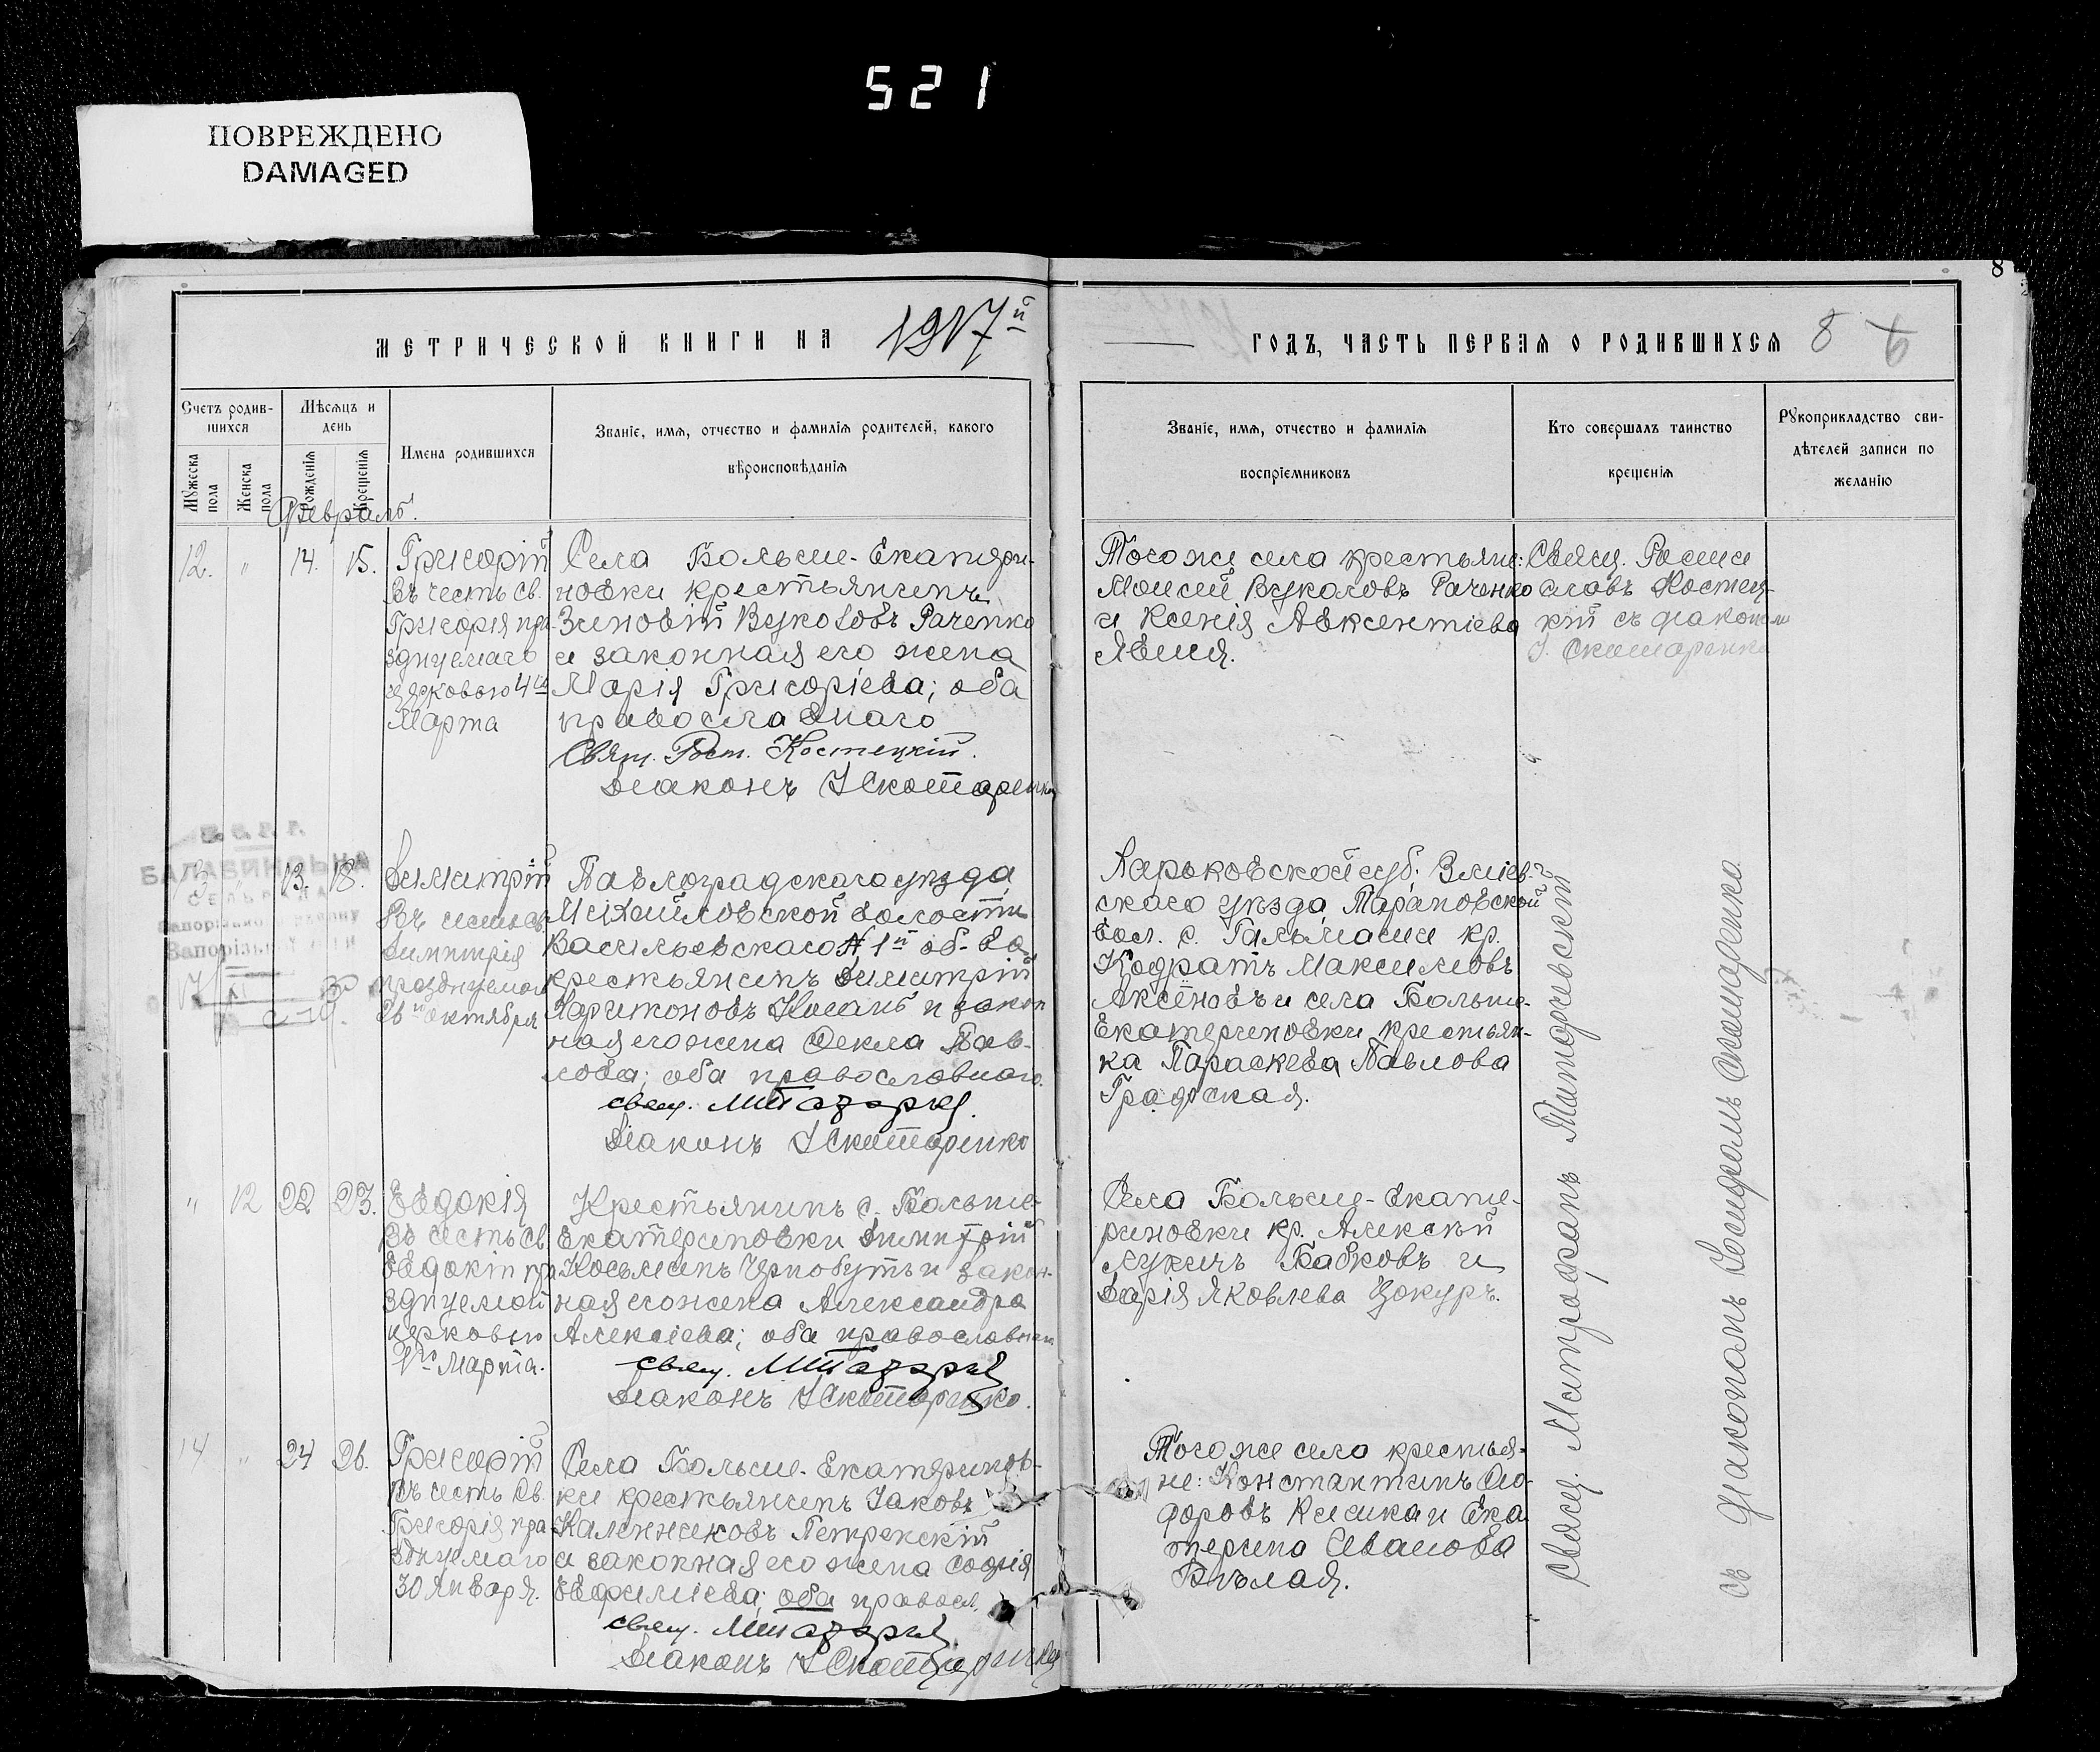 521
ПОВРЕЖДЕНО
DAMAGED
8
МЕТРИЧЕСКОЙ КНИГИ НА 1917й
ГОДЪ, ЧАСТЬ ПЕРВАЯ О РОДИВШИХСЯ 8 6
Счетъ родив-
шихся
Мужеска пола
Женска пола
Мѣсяцъ и
день
Рожденія
Крещенія
Имена родившихся
Званіе, имя, отчество и фамилія родителей, какого
вѣроисповѣданія
Званіе, имя, отчество и фамилія
воспріемниковъ
Кто совершалъ таинство
крещенія
Рукоприкладство сви-
дѣтелей записи по
желанію
Февраль.
12. " 14. 15.
Григорій
Въ честь св.
Григорія пра
зднуемаго
церковью 4го
Марта
Села Больше-Екатери-
новки крестьянинъ
Зиновій Вуколовъ Раченко
и законная его жена
Марія Григоріева; оба
православнаго
Свящ. Рост. Костецкій.
Діаконъ І Скотаренко
Того же села крестьяне:
Моисей Вуколовъ Раченко
и Ксенія Авксентіева
Явная.
Свящ. Рости
славъ Костец-
кій съ діакономъ
І. Скотаренко
БАЛАБИНСЬКА
13. 18.
Димитрій
Въ честь св.
Димитрія
празднуемаго
26го октября
Павлоградскаго уѣзда
Михайловской волости
Васильевскаго № 1й об-ва
крестьянинъ Димитрій
Харитоновъ и закон
ная его жена Фекла Пав-
лова; оба православнаго.
свящ.
Діаконъ І Скотаренко
Харьковской губ. Зміев-
скаго уѣзда, Тарановской
вол. с. кр.
Кодратъ Максимовъ
Аксёновъ и села Больше-
Екатериновки крестьян-
ка Параскева Павлова
Градская.
" 12 22 23.
Евдокія
Въ честь св
Евдокіи пра
зднуемой
церковью
1го Марта.
Крестьянинъ с. Больше-
Екатериновки Димитрій
Косьминъ Чернобуть и закон-
ная его жена Александра
Алексіева; оба православнаго
свящ.
Діаконъ І Скотаренко.
Села Больше-Екате-
риновки кр. Алексѣй
Лукичъ Бабковъ и
Дарія Яковлева Цокуръ.
14 " 24 26.
Григорій
Въ честь св.
Григорія пра
зднуемаго
30 Января.
Села Больше-Екатеринов-
ки крестьянинъ Іаковъ
Петренскій
и законная его жена Софія
Евфиміева; оба правосл.
свящ.
Діаконъ І Скотаренко
Того же села крестья-
не: Константинъ Фео-
доровъ и Ека
терина Иванова
Бѣлая.
Свящ. Митрофанъ
съ діакономъ Іосифомъ Скотаренко